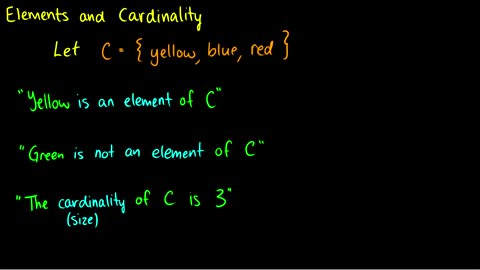 Elements and Cardinality
Let C = { yellow, blue, red }
"Yellow is an element of C"
"Green is not an element of C"
"The cardinality of C is 3"
(size)